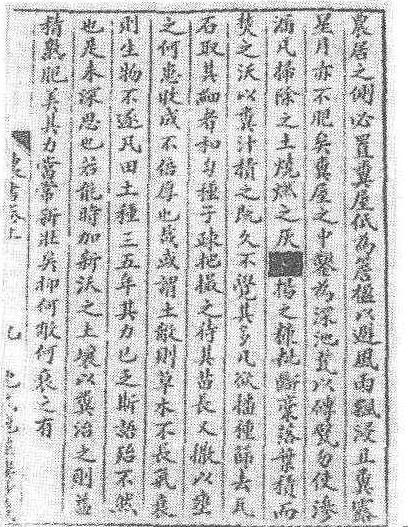 農居之側必置糞屋低為簷楹以避風雨飄浸且糞露
星月亦不肥矣糞屋之中鑿為深池甃以磚甓勿使滲
漏凡掃除之土燒燃之灰簸揚之糠粃斷稾落葉積而
焚之沃以糞汁積之既久不覺其多凡欲播種篩去瓦
石取其細者和勻種子疎把撮之待其苗長又撒以壅
之何患收成不倍厚也哉或謂土敝則草木不長氣衰
則生物不遂凡田土種三五年其力已乏斯語殆不然
也是未深思也若能時加新沃之土壤以糞治之則益
精熟肥美其力當常新壯矣抑何敝何衰之有
農書卷上
九